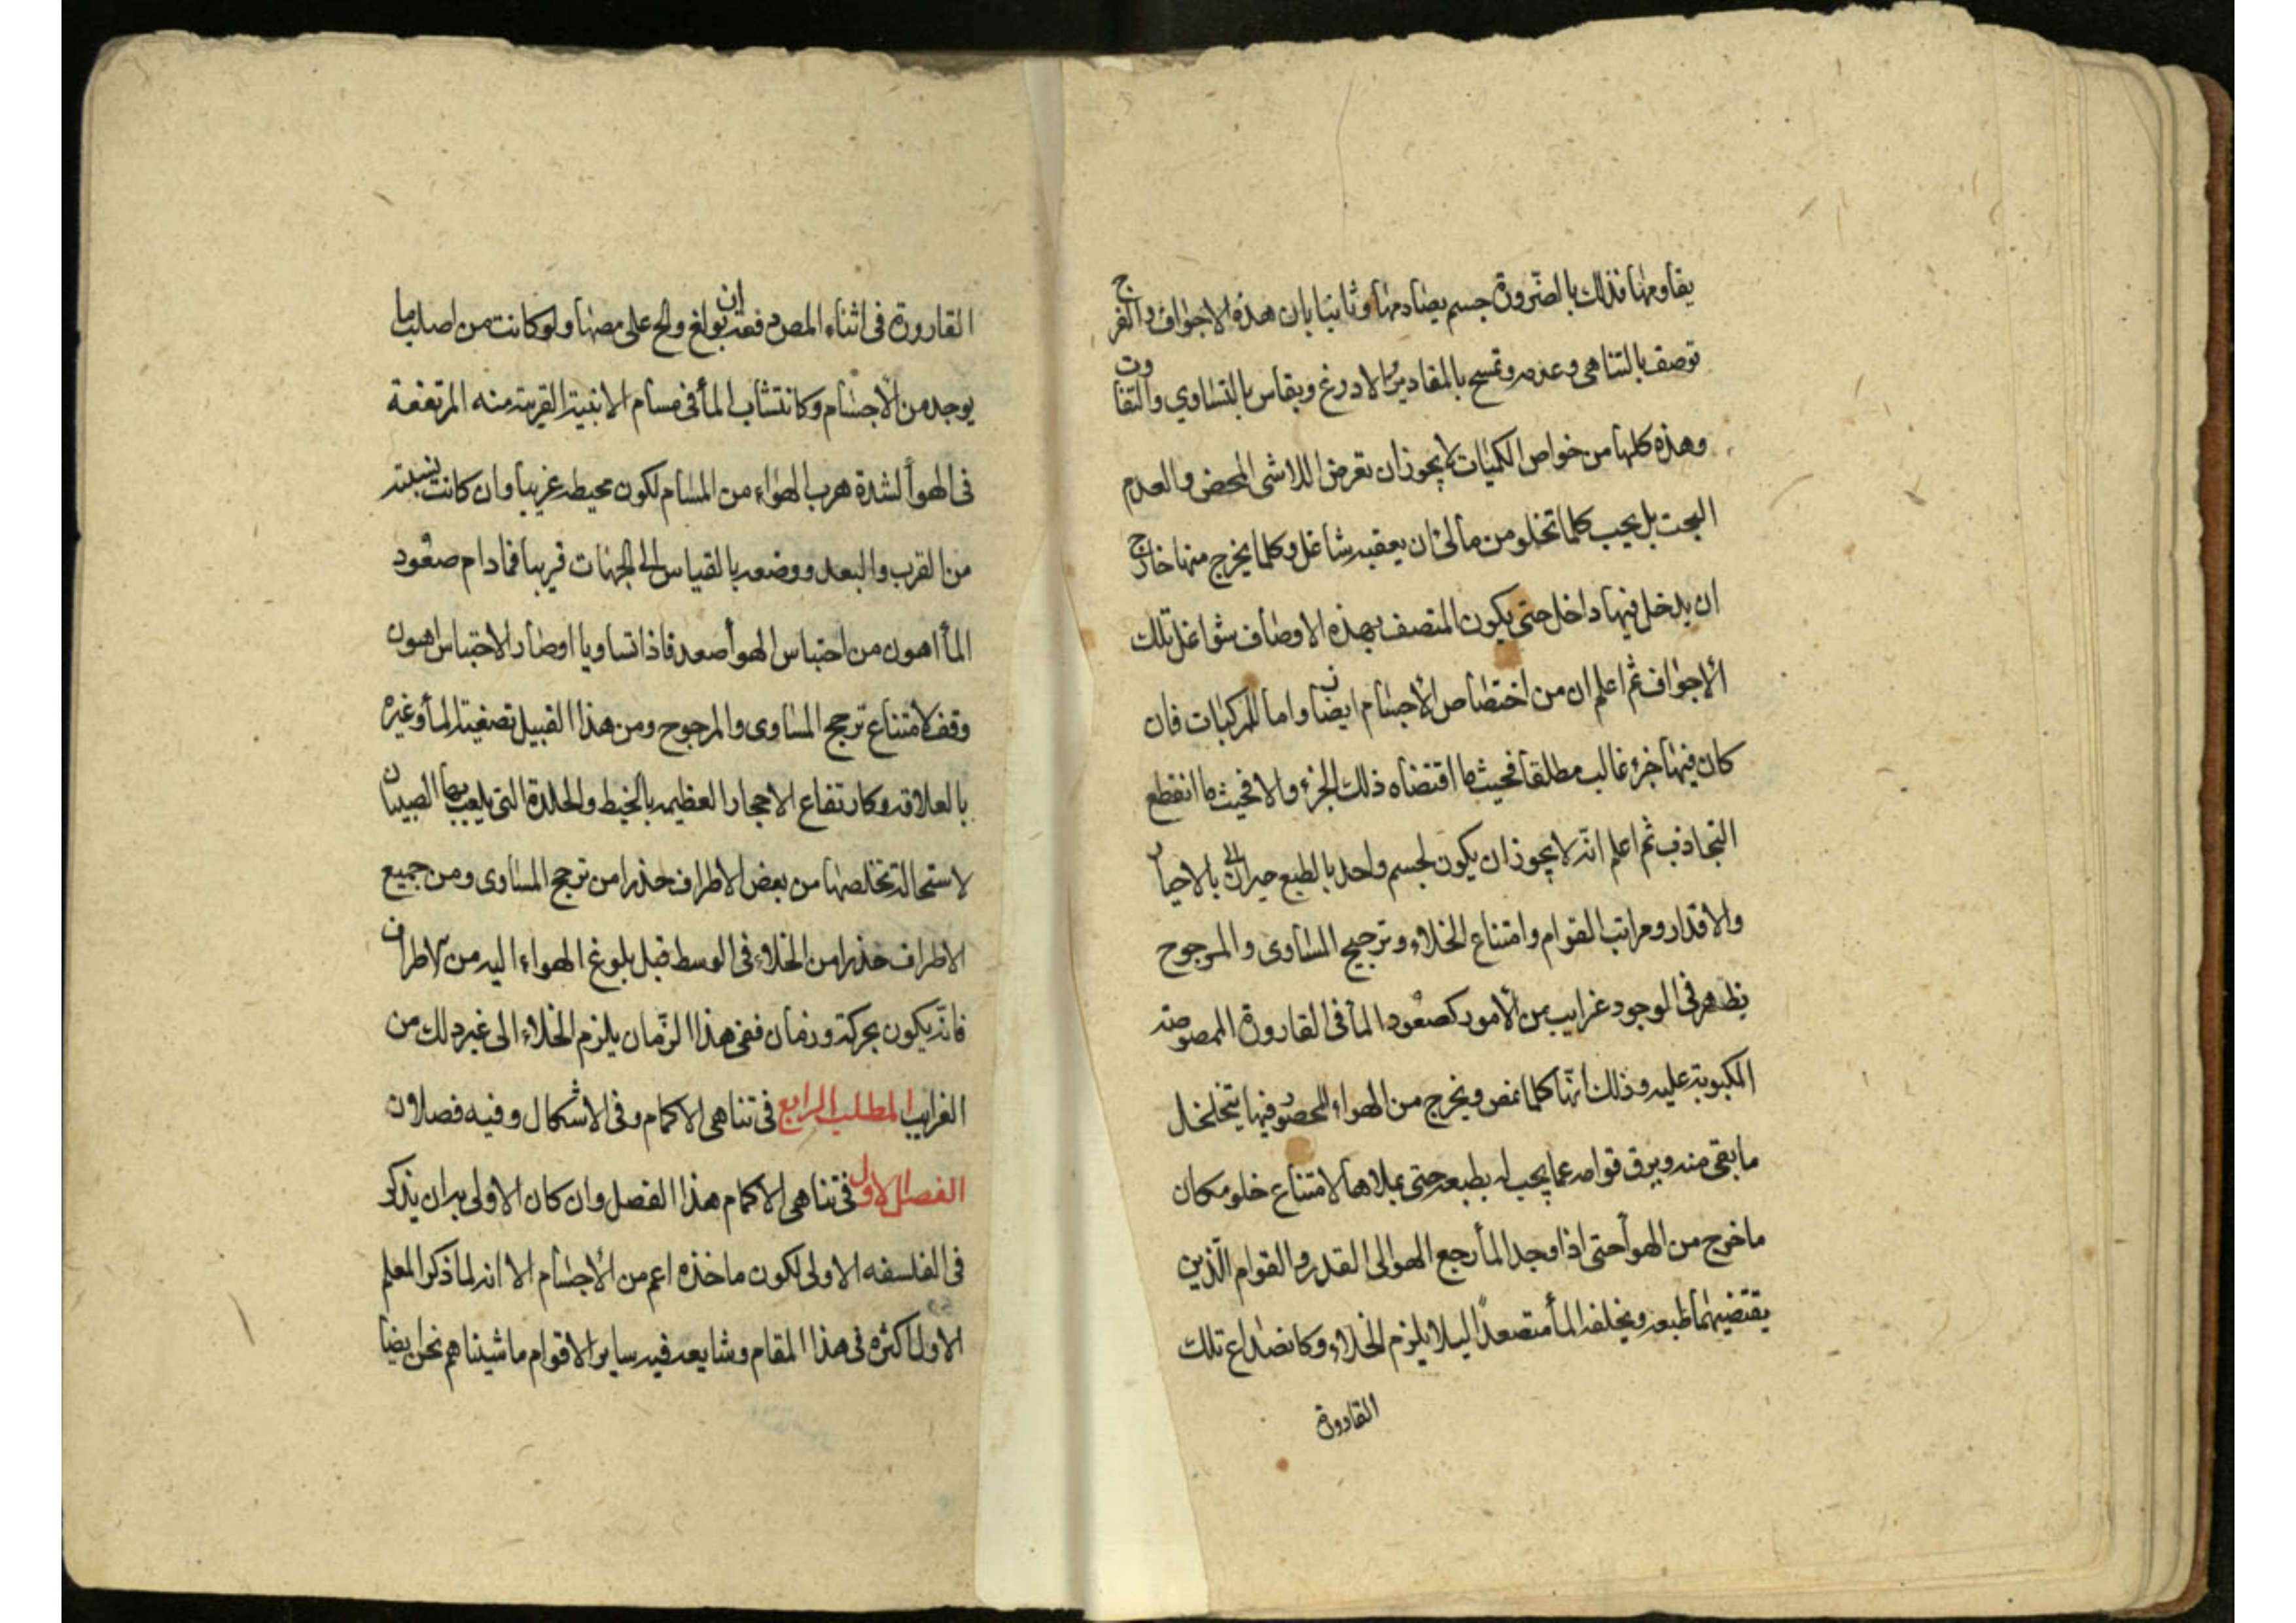 يقاومها فذلك بالضرورة جسم يصادمها وثانيا بان هذه الاجواف والفرج
توصف بالتناهي وعدمه وتمسح بالمقادير والاذرع ويقاس بالتساوي والتفاوت
وهذه كلها من خواص الكميات لا يجوز ان تعرض اللاشي المحض والعدم
البحت بل يجب كلما تخلو من مالئ ان يعقبه شاغل وكلما يخرج منها خارج
ان يدخل فيها داخل حتى يكون المتصف بهذه الاوصاف شواغل تلك
الاجواف ثم اعلم ان من اختصاص الاجسام ايضا واما المركبات فان
كان فيها جزء غالب مطلقا فحيث ما اقتضاه ذلك الجزء والا فحيث ما انقطع
التجاذب ثم اعلم انه لا يجوز ان يكون لجسم واحد بالطبع حيزان بالاحياز
والاقدار ومراتب القوام وامتناع الخلاء وترجيح المساوى والمرجوح
يظهر فى الوجود غرايب من الامور كصعود المأ فى القارورة الممصوصة
المكبوبة عليه وذلك انها كلما تمص ويخرج من الهواء المحصور فيها يتخلخل
ما بقى منه ويرق قوامه عما يجب له بطبعه حتى يملاها لامتناع خلو مكان
ما خرج من الهوأ حتى اذا وجد المأ رجع الهوا الى القدر والقوام الذين
يقتضيهما طبعه ويخلفه المأ متصعدا ليلا يلزم الخلاء وكانصداع تلك
القارورة
القارورة فى اثناء المص فمه ان بولغ والح على مصها ولو كانت من اصلب ما
يوجد من الاجسام وكانتشاب المأ فى مسام الابنية القريبة منه المرتفعة
فى الهوأ لشدة هرب الهواء من المسام لكون محيطه غريبا وان كانت نسبته
من القرب والبعد ووضعه بالقياس الى الجهات قريبا فما دام صعود
المأ اهون من احتباس الهوأ صعد فاذا تساويا او صار الاحتباس اهون
وقف لامتناع ترجح المساوى والمرجوح ومن هذا القبيل تصفية المأ وغيره
بالعلاقه وكارتفاع الاحجار العظيمه بالخيط والجلدة التى يلعب بها الصبيان
لاستحالة تخلصها من بعض الاطراف حذرا من ترجح المساوى ومن جميع
الاطراف حذرا من الخلاء فى الوسط قبل بلوغ الهواء اليه من الاطراف
فانه يكون بحركة وزمان ففى هذا الزمان يلزم الخلاء الى غير ذلك من
الغرايب المطلب الرابع فى تناهى الاكمام وفى الاشكال وفيه فصلان
الفصل الاول فى تناهى الاكمام هذا الفصل وان كان الاولى به ان يذكر
فى الفلسفه الاولى لكون ماخذه اعم من الاجسام الا انه لما ذكر المعلم
الاول اكثره فى هذا المقام وشايعه فيه ساير الاقوام ماشيناهم نحن ايضا